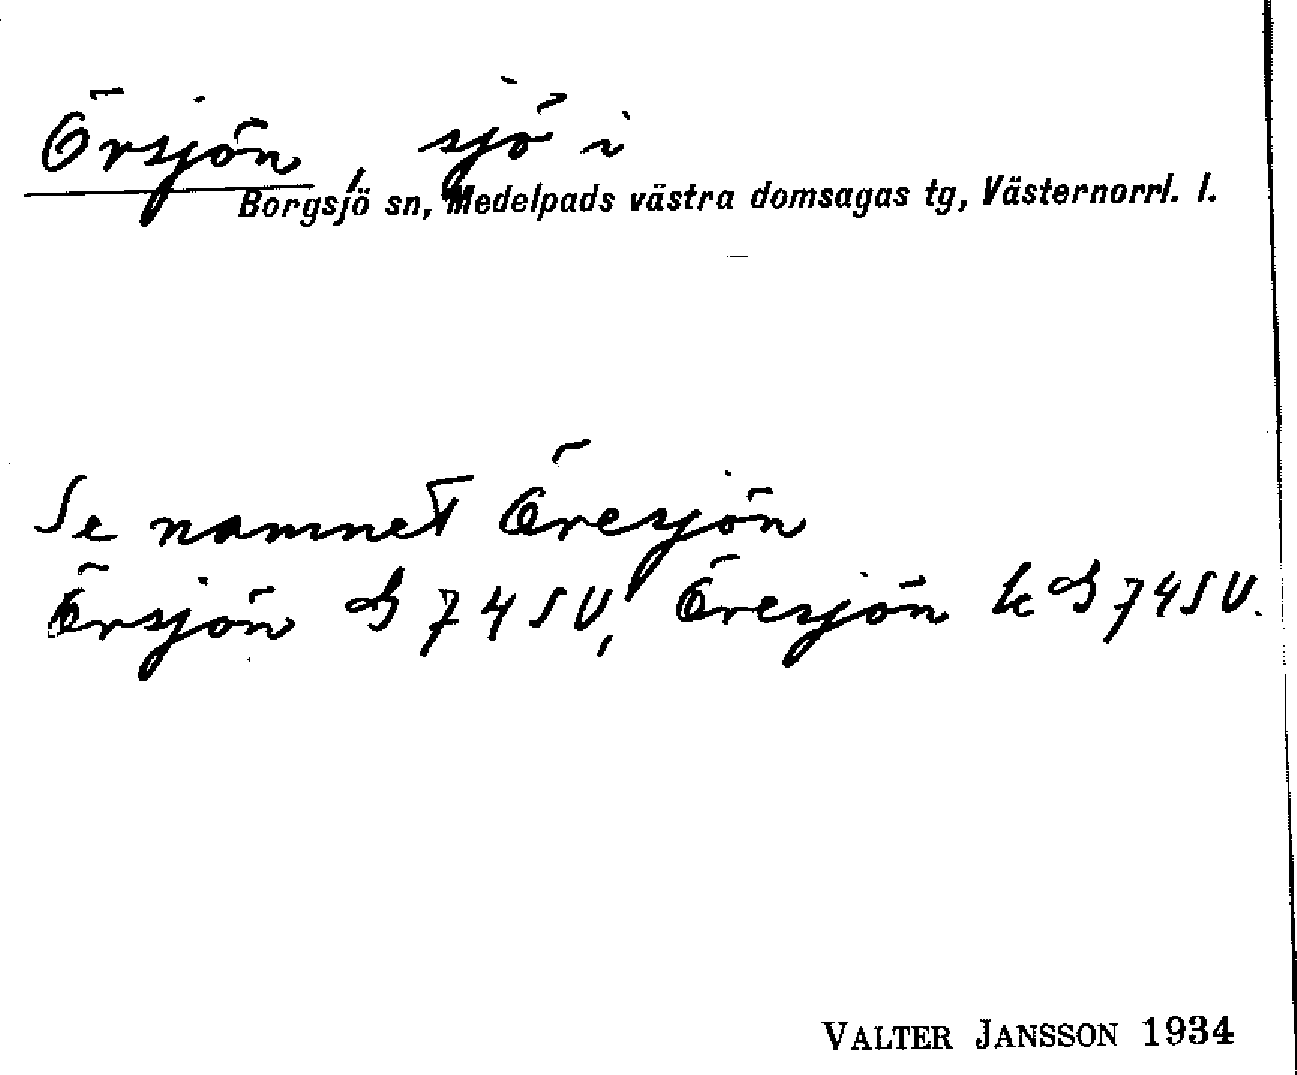 Örsjön, sjö i
Borgsjö sn, Medelpads västra domsagas tg, Västernorrl. l.
Se namnet Öresjön
Örsjön S 74 SV, Öresjön k S 74 SV.
VALTER JANSSON 1934